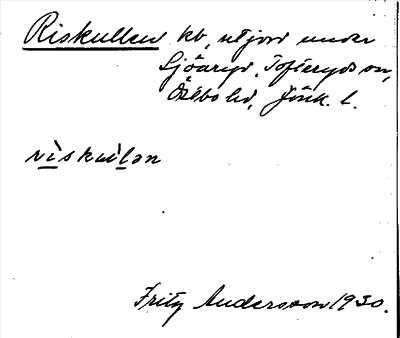 Riskullen kb, utjord under
Sjöaryd, Tofteryds sn,
Östbo hd, Jönk. l.
rìskùlən
Fritz Andersson 1930.